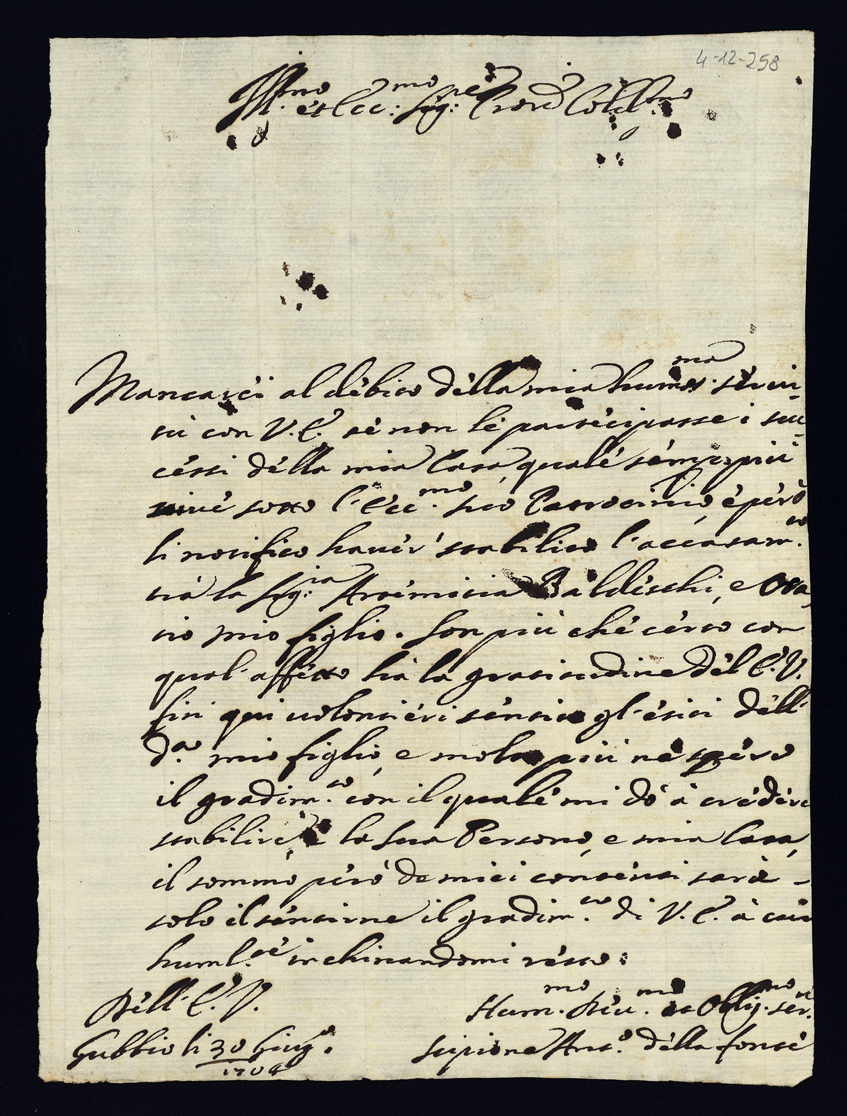 4-12-258
Ill.mo et Ecc.mo Sig.re Pron Col.mo
Mancarei al debito della mia hum.ma servi-
tù con V.E. se non le partecipasse i suc-
cessi della mia Casa, quale sempre più
vive sotto l'Ecc.mo suo Patrocinio, e però
li notifico haver stabilito l'accasam.to
trà la Sig.ra Artemitia Baldeschi, e Ora-
tio mio figlio. Son più che certo con
qual' affetto hà la gratitudine del E.V.
fin qui volontieri sentito gl'esiti dell
d.o mio figlio, e molto più ne spero
il gradim.to con il quale mi dò à credere
stabilire la sua Persona, e mia Casa,
il sommo però de miei contenti sarà
solo il sentirne il gradim.to di V.E. à cui
huml.te inchinandomi resto:
Dell' E.V.
Gubbio li 30 Giug.o
1704
Hum.mo Deu.mo et Oblig.mo ser.re
Scipione Ant.o della Fonte